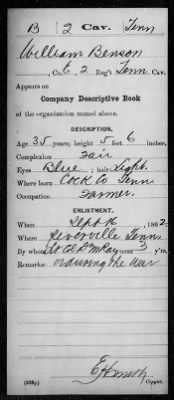 B | 2 Cav. | Tenn
William Benson
, Co. E, 2 Reg't Tenn. Cav.
Appears on
Company Descriptive Book
of the organization named above.
DESCRIPTION.
Age 35 years; height 5 feet 6 inches.
Complexion Fair
Eyes Blue; hair Light.
Where born Cock Co Tenn
Occupation Farmer.
ENLISTMENT.
When Sept 16, 1862.
Where Severville Tenn.
By whom Lt Col D. McRay; term 3 y'rs.
Remarks: or during the war
Copyist.